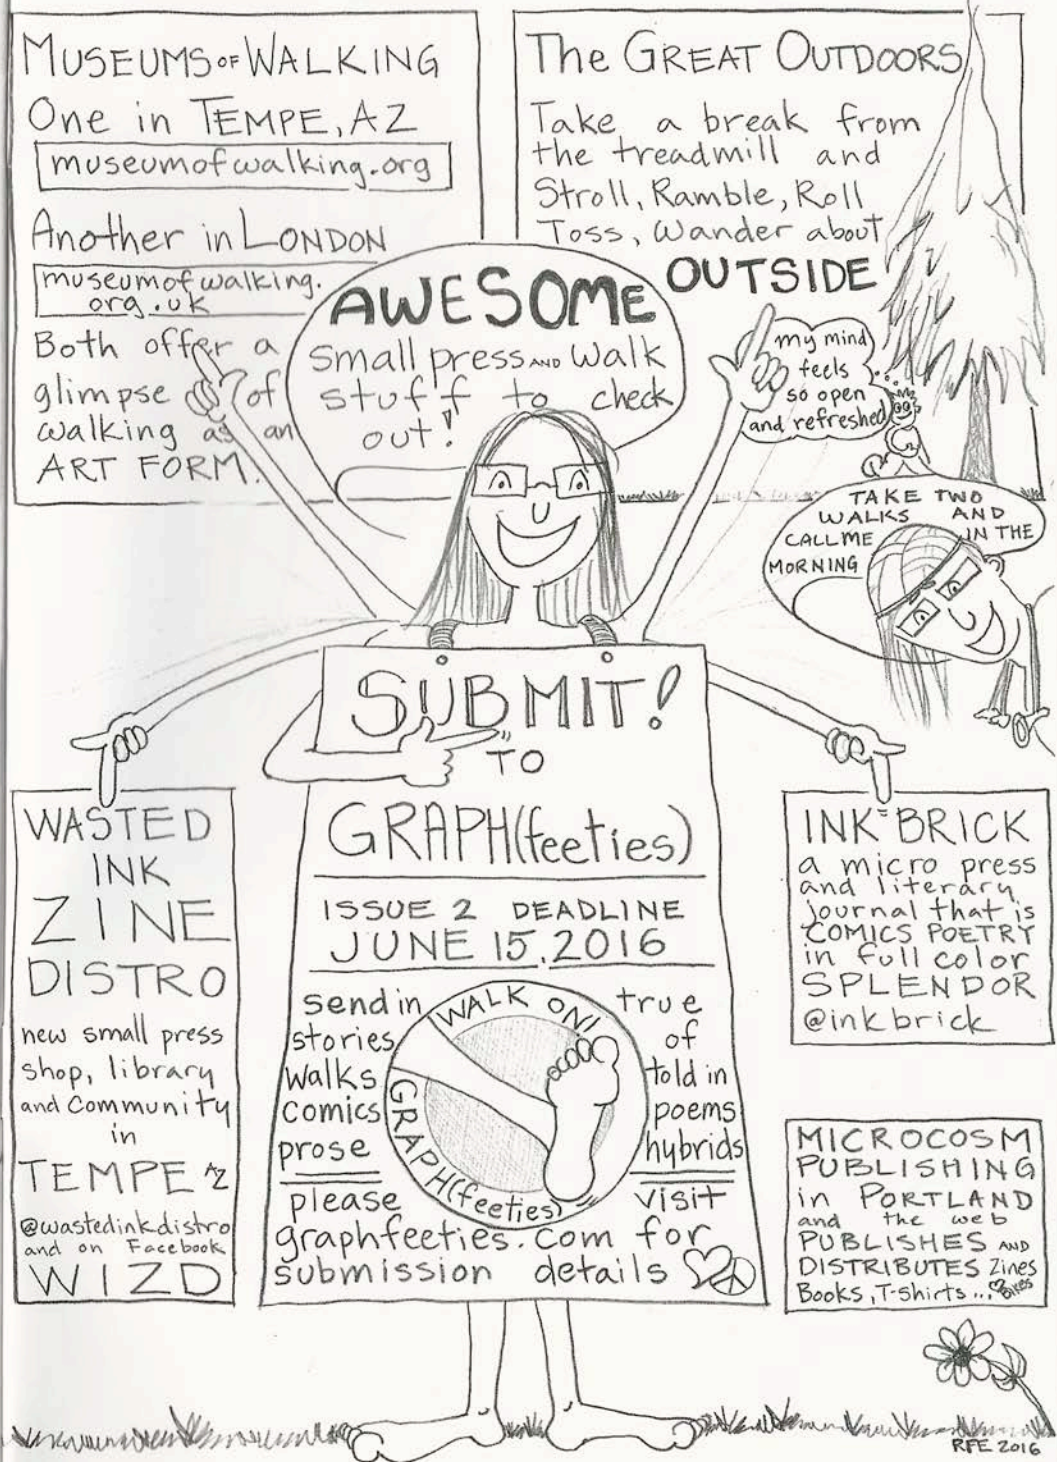 MUSEUMS OF WALKING
One in TEMPE, AZ
museumofwalking.org
Another in LONDON
museumofwalking.
org.uk
Both offer a
glimpse of
walking as an
ART FORM.
The GREAT OUTDOORS
Take a break from
the treadmill and
Stroll, Ramble, Roll
Toss, Wander about
OUTSIDE
AWESOME
small press AND walk
stuff to check
out!
my mind
feels
so open
and refreshed
TAKE TWO
WALKS AND
CALL ME IN THE
MORNING
SUBMIT!
TO
GRAPH(feeties)
ISSUE 2 DEADLINE
JUNE 15, 2016
send in true
stories of
walks told in
comics poems
prose hybrids
WALK ON!
GRAPH(feeties)
please visit
graphfeeties.com for
submission details
WASTED
INK
ZINE
DISTRO
new small press
shop, library
and community
in
TEMPE AZ
@wastedinkdistro
and on Facebook
WIZD
INK=BRICK
a micro press
and literary
journal that is
COMICS POETRY
in full color
SPLENDOR
@inkbrick
MICROCOSM
PUBLISHING
in PORTLAND
and the web
PUBLISHES AND
DISTRIBUTES Zines
Books, T-shirts... Bikes
RFE 2016